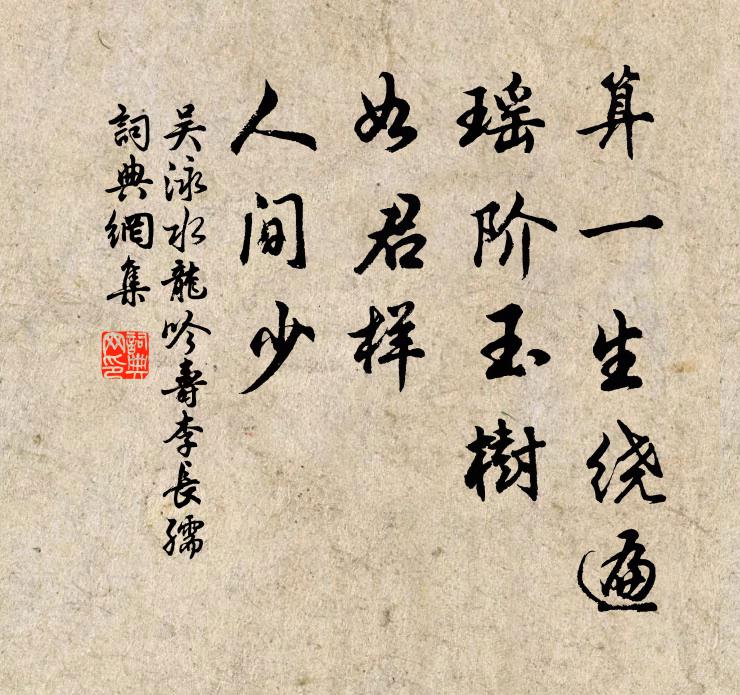 算一生绕遍
瑶阶玉樹
如君样
人间少
吴泳水龍吟壽李長孺
詞典網集
詞典
网印